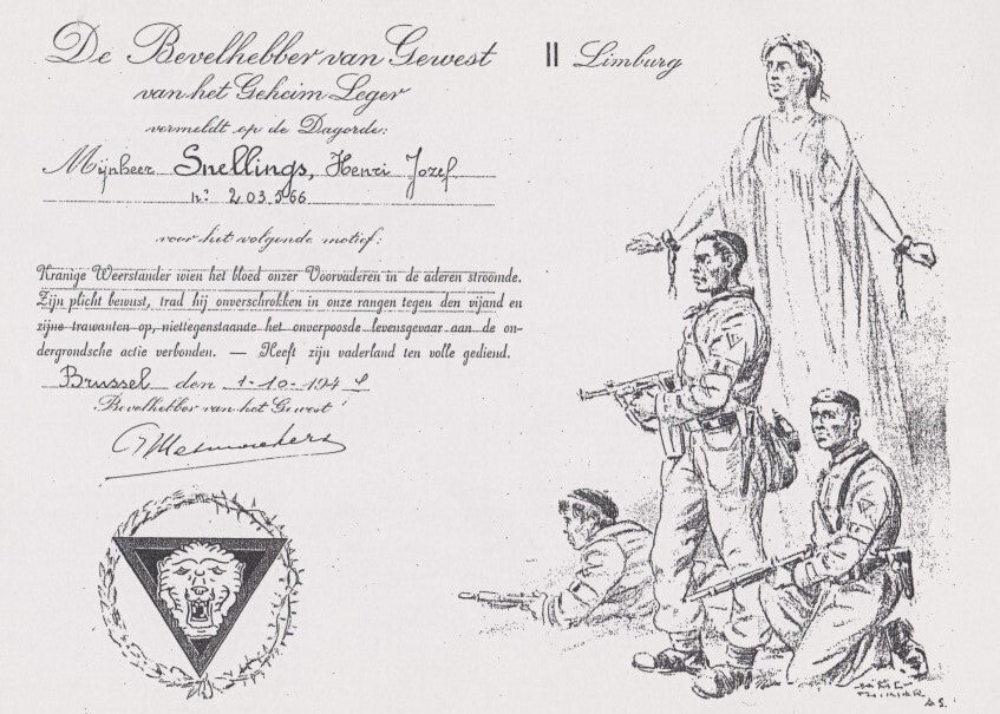 De Bevelhebber van Gewest II Limburg
van het Geheim Leger
vermeldt op de Dagorde:
Mijnheer Snellings, Henri Jozef
nr: 203.566
voor het volgende motief:
Kranige Weerstander wien het bloed onzer Voorvaderen in de aderen stroomde.
Zijn plicht bewust, trad hij onverschrokken in onze rangen tegen den vijand en
zijne trawanten op, niettegenstaande het onverpoosde levensgevaar aan de on-
dergrondsche actie verbonden. — Heeft zijn vaderland ten volle gediend.
Brussel den 1-10-194
Bevelhebber van het Gewest